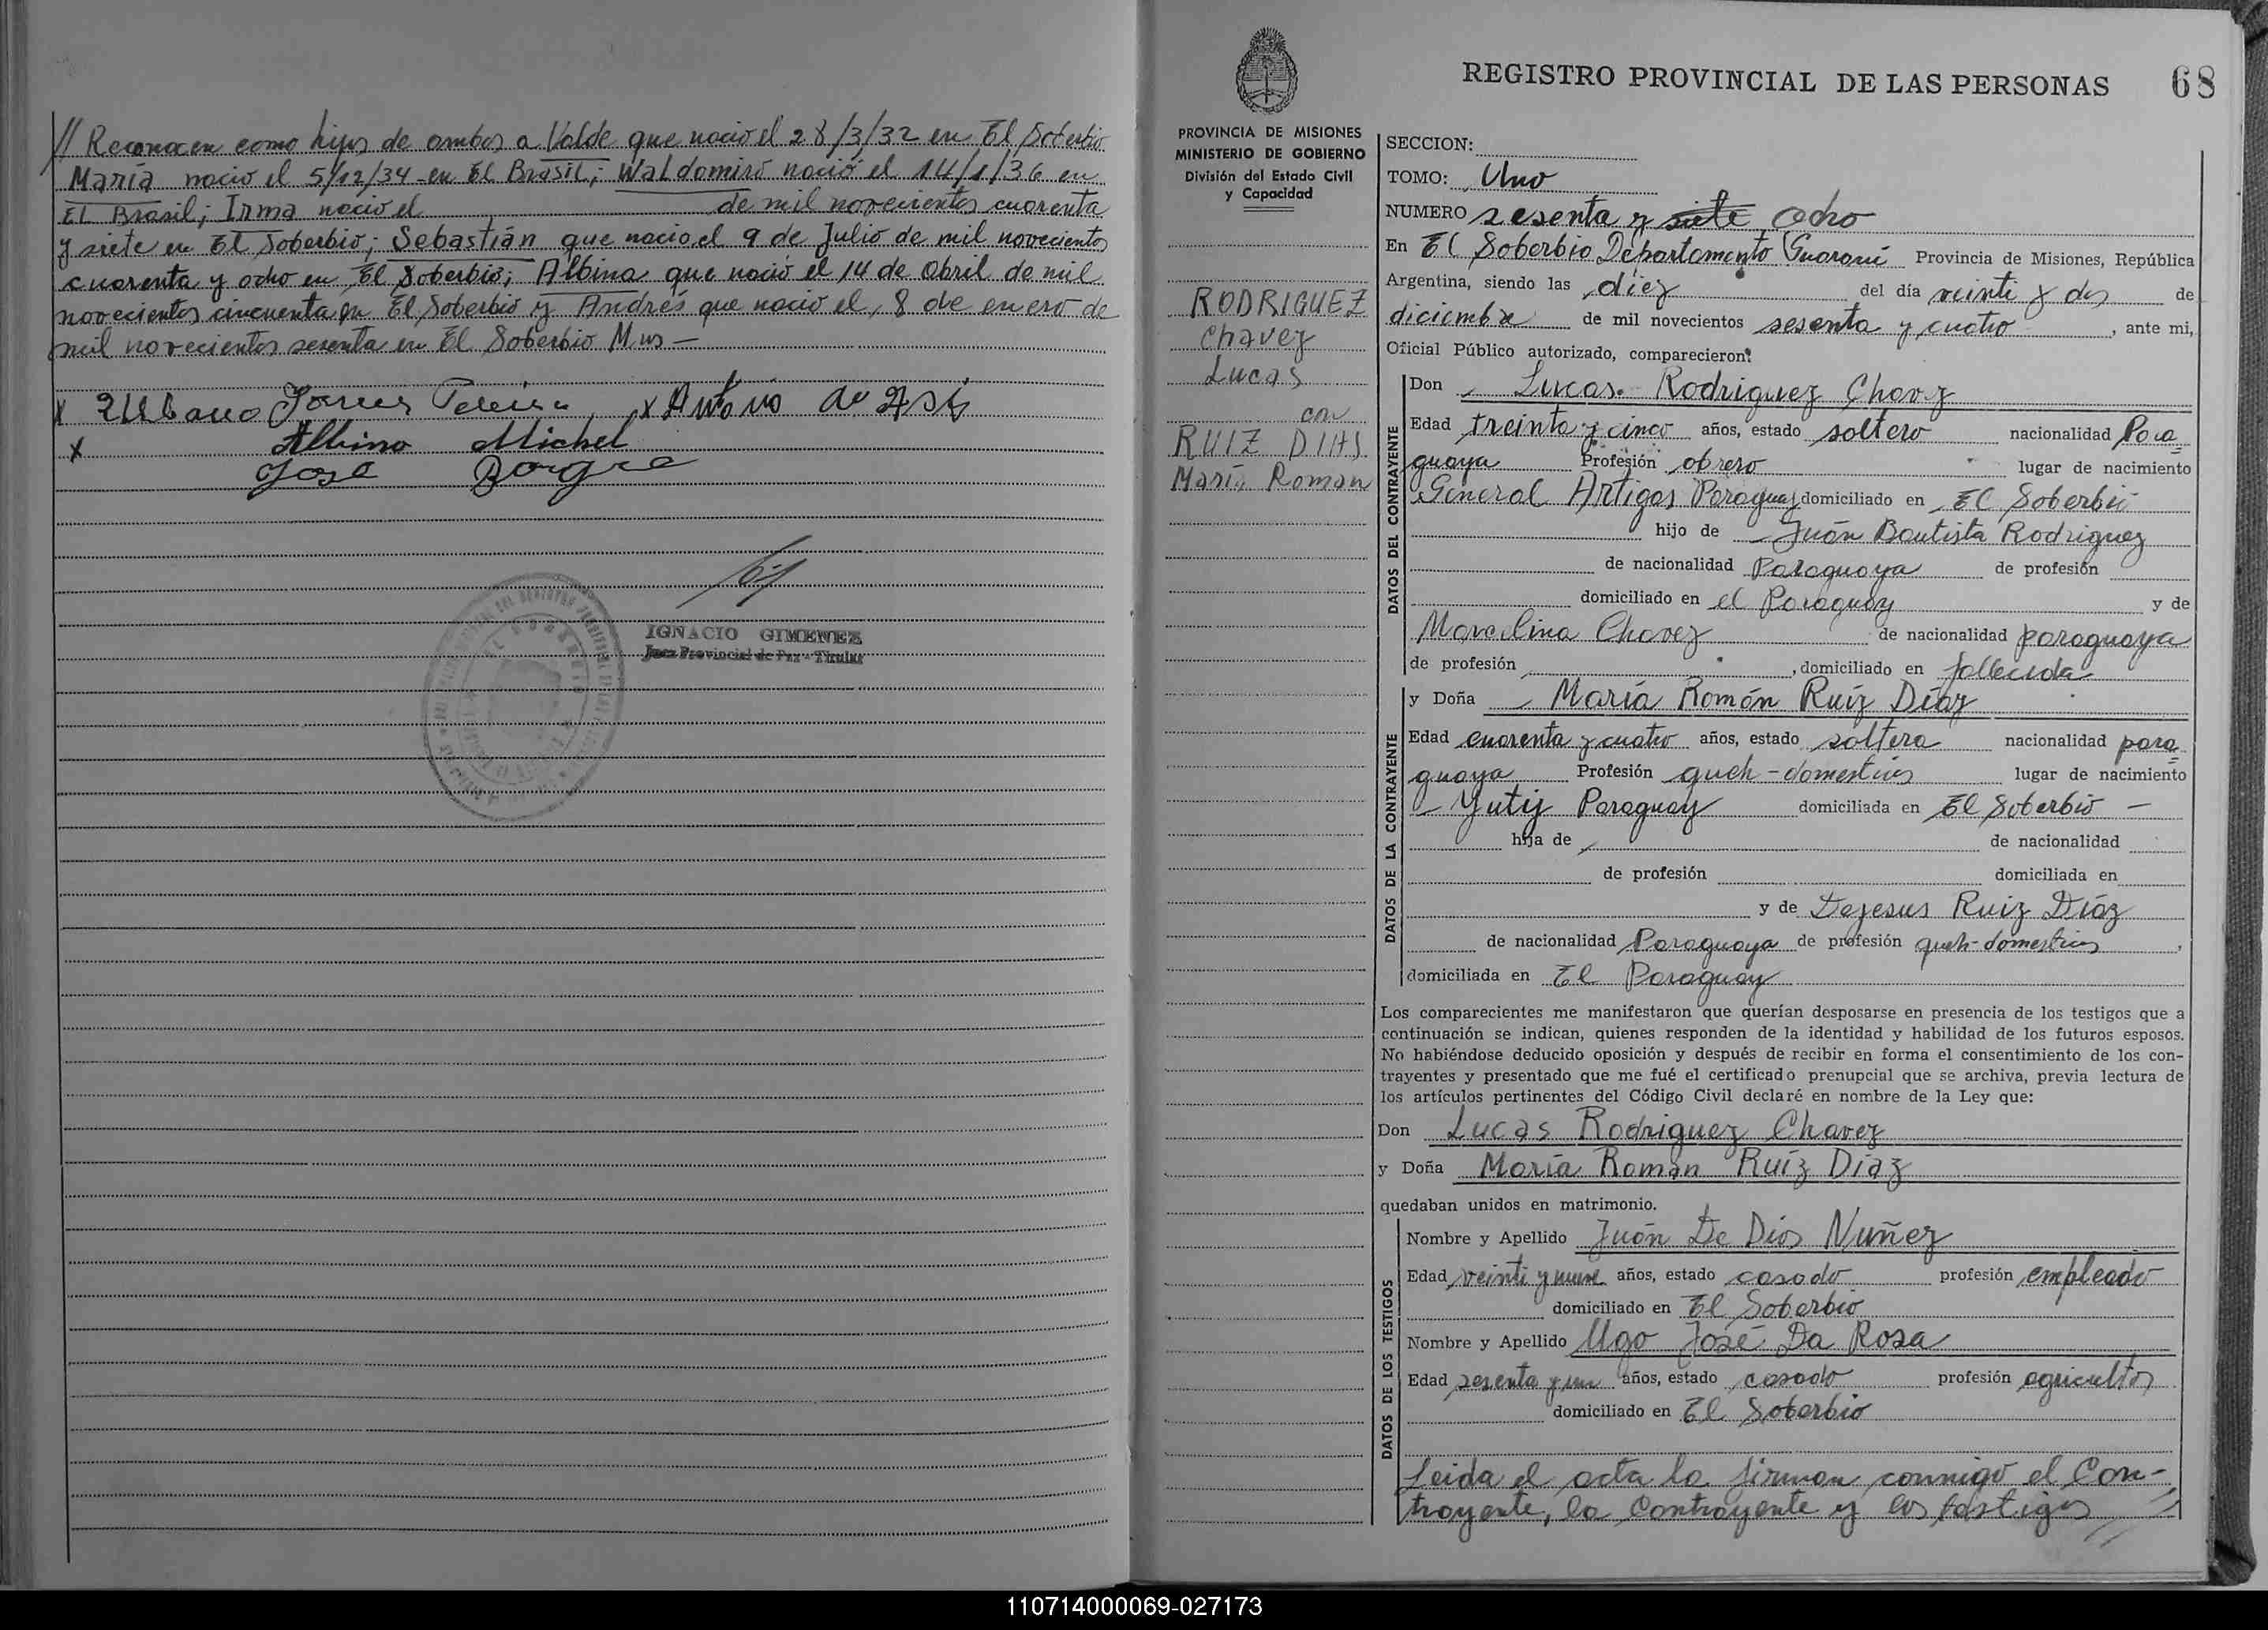 // Reconocen como hijos de ambos a Valde que nacio el 28/3/32 en El Soberbio
María nacio el 5/12/34 en El Brasil; Waldomiro nació el 14/1/36 en
El Brasil; Irma nacio el de mil novecientos cuarenta
y siete en El Soberbio; Sebastián que nacio el 9 de Julio de mil novecientos
cuarenta y ocho en El Soberbio; Albina que nació el 14 de Abril de mil
novecientos cincuenta en El Soberbio y Andrés que nacio el 8 de enero de
mil novecientos sesenta en El Soberbio Mns —
x Pereira x Antonio de
x Albino Michel
José
IGNACIO GIMENEZ
Juez Provincial de Paz - Titular
REGISTRO PROVINCIAL DE LAS PERSONAS 68
PROVINCIA DE MISIONES
MINISTERIO DE GOBIERNO
División del Estado Civil
y Capacidad
RODRIGUEZ
Chavez
Lucas
con
RUIZ DIAS
María Roman
SECCION:
TOMO: Uno
NUMERO sesenta y siete ocho
En El Soberbio Departamento Guaraní Provincia de Misiones, República
Argentina, siendo las diez del día veinti y dos de
diciembre de mil novecientos sesenta y cuatro, ante mi,
Oficial Público autorizado, comparecieron:
DATOS DEL CONTRAYENTE
Don Lucas Rodriguez Chavez
Edad treinta y cinco años, estado soltero nacionalidad Para=
guaya Profesión obrero lugar de nacimiento
General Artigas Paraguay domiciliado en El Soberbio
hijo de Juán Bautista Rodriguez
de nacionalidad Paraguaya de profesión
domiciliado en el Paraguay y de
Marcelina Chavez de nacionalidad paraguaya
de profesión , domiciliado en fallecida
DATOS DE LA CONTRAYENTE
y Doña María Román Ruíz Díaz
Edad cuarenta y cuatro años, estado soltera nacionalidad para=
guaya Profesión queh-domesticos lugar de nacimiento
Yutij Paraguay domiciliada en El Soberbio —
hija de de nacionalidad
de profesión domiciliada en
y de Dejesus Ruiz Díaz
de nacionalidad Paraguaya de profesión queh-domesticos,
domiciliada en El Paraguay
Los comparecientes me manifestaron que querían desposarse en presencia de los testigos que a
continuación se indican, quienes responden de la identidad y habilidad de los futuros esposos.
No habiéndose deducido oposición y después de recibir en forma el consentimiento de los con-
trayentes y presentado que me fué el certificado prenupcial que se archiva, previa lectura de
los artículos pertinentes del Código Civil declaré en nombre de la Ley que:
Don Lucas Rodriguez Chavez
y Doña María Román Ruíz Díaz
quedaban unidos en matrimonio.
DATOS DE LOS TESTIGOS
Nombre y Apellido Juán De Dios Nuñez
Edad veinti y nueve años, estado casado profesión empleado
domiciliado en El Soberbio
Nombre y Apellido Ugo José Da Rosa
Edad sesenta y un años, estado casado profesión agricultor
domiciliado en El Soberbio
Leida el acta la firman conmigo el Con-
trayente, la Contrayente y los testigos //
110714000069-027173